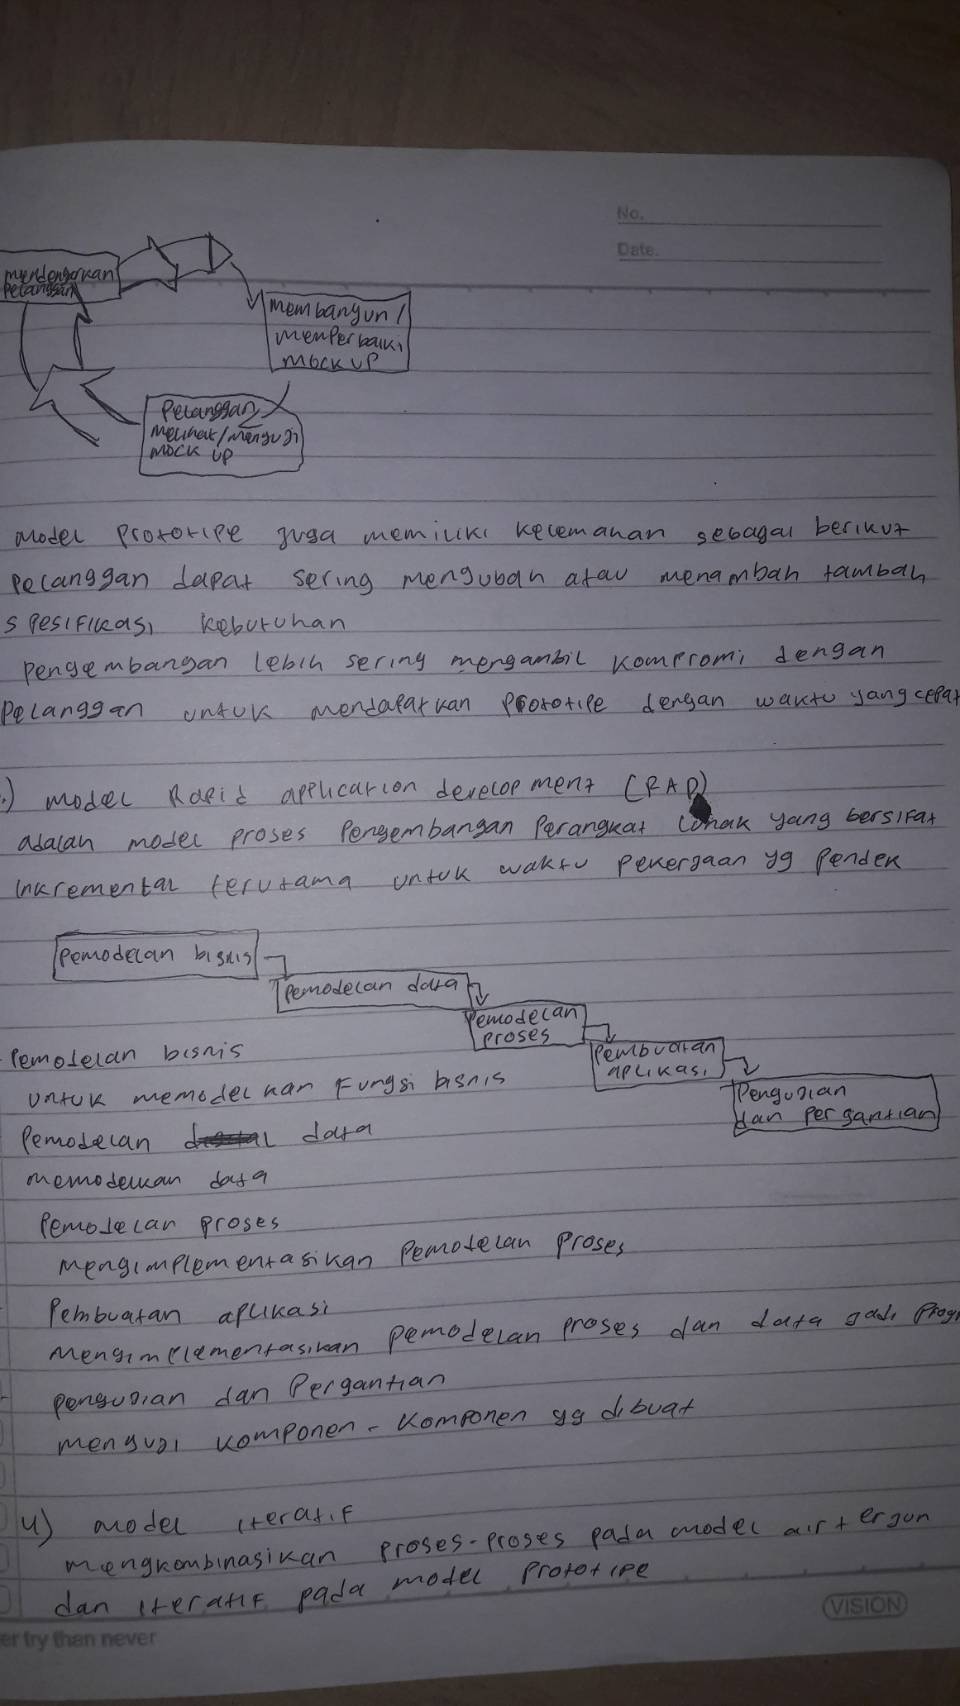 No.
Date.
mendengarkan
Pelanggan
membangun /
memperbaiki
mock up
Pelanggan
melihat/menguji
mock up
model prototipe juga memiliki kelemahan sebagai berikut
pelanggan dapat sering mengubah atau menambah tambah
spesifikasi kebutuhan
pengembangan lebih sering mengambil kompromi dengan
pelanggan untuk mendapatkan prototipe dengan waktu yang cepat
.) model Rapid application development (RAD)
adalah model proses pengembangan perangkat lunak yang bersifat
inkremental terutama untuk waktu pekerjaan yg pendek
pemodelan bisnis
pemodelan data
pemodelan
proses
pembuatan
aplikasi
Pengujian
dan pergantian
- Pemodelan bisnis
untuk memodelkan fungsi bisnis
pemodelan data
memodelkan data
pemodelan proses
mengimplementasikan pemodelan proses
pembuatan aplikasi
mengimplementasikan pemodelan proses dan data jadi progr
pengujian dan pergantian
menguji komponen-komponen yg dibuat
4) model iteratif
mengkombinasikan proses-proses pada model air terjun
dan iteratif pada model prototipe
VISION
er try than never